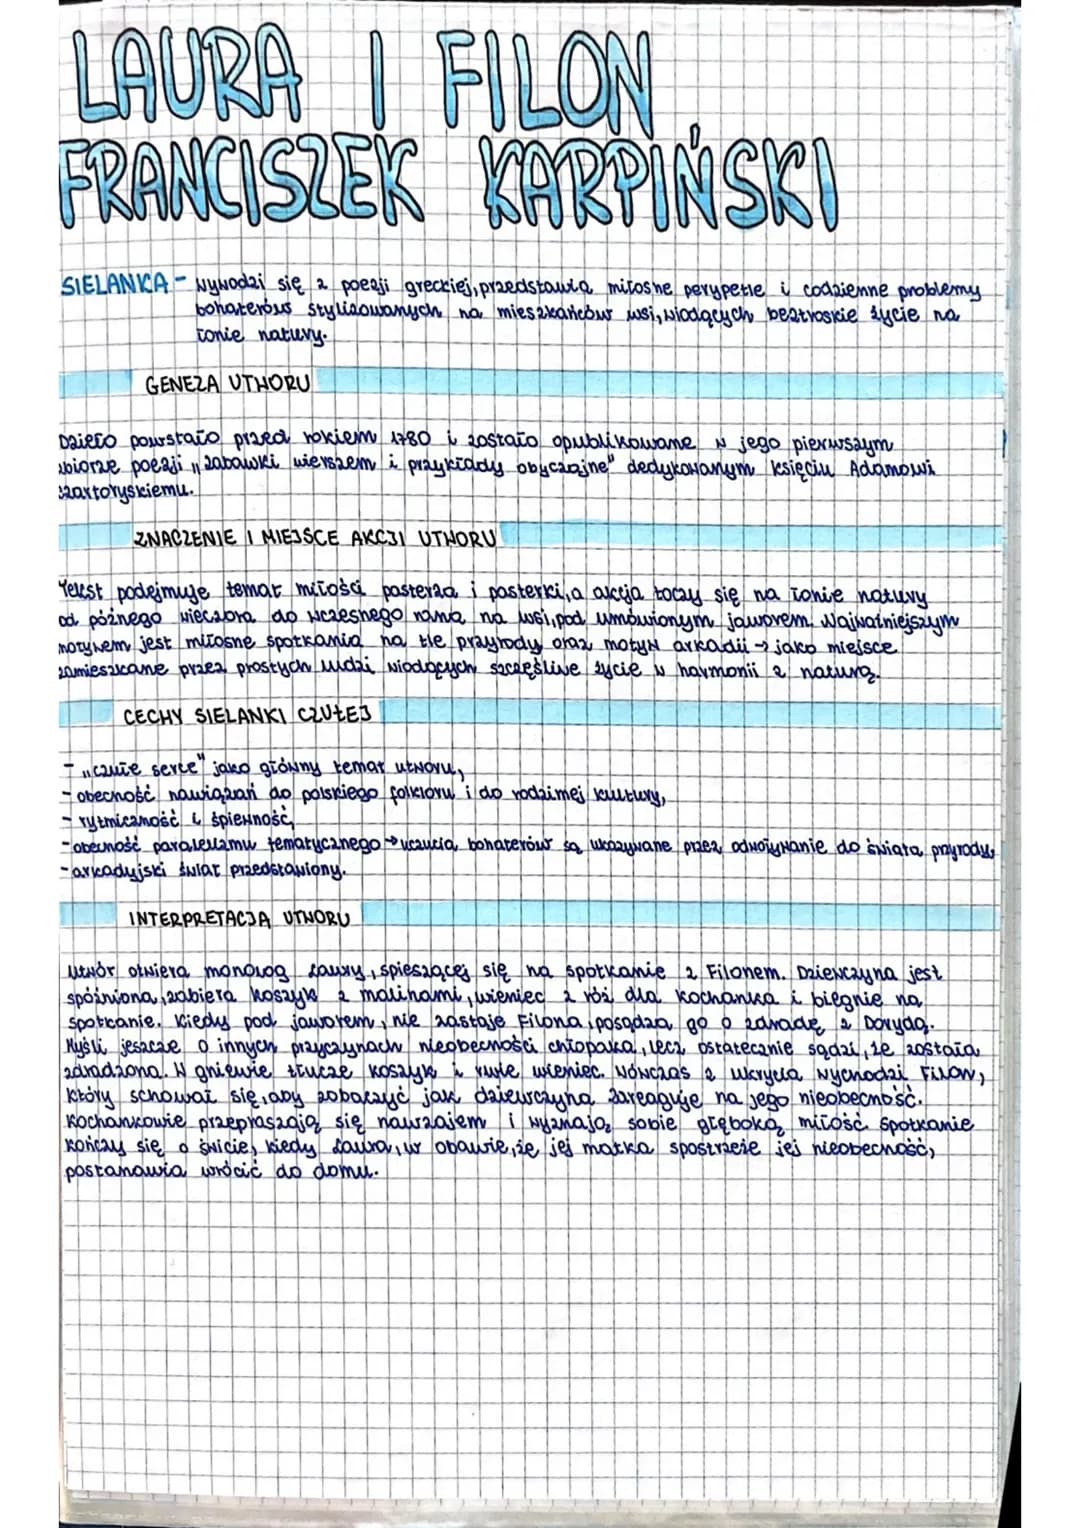 LAURA I FILON
FRANCISZEK KARPIŃSKI
SIELANKA - wywodzi się z poezji greckiej, przedstawia miłosne perypetie i codzienne problemy
bohaterów stylizowanych na mieszkańców wsi, wiodących beztroskie życie na
łonie natury.
GENEZA UTWORU
Dzieło powstało przed rokiem 1780 i zostało opublikowane w jego pierwszym
zbiorze poezji „Zabawki wierszem i przykłady obyczajne" dedykowanym księciu Adamowi
Czartoryskiemu.
ZNACZENIE I MIEJSCE AKCJI UTWORU
Tekst podejmuje temat miłości pasterza i pasterki, a akcja toczy się na łonie natury
od późnego wieczora do wczesnego rana na wsi, pod umówionym jaworem. Najważniejszym
motywem jest miłosne spotkania na tle przyrody oraz motyw arkadii → jako miejsce
zamieszkane przez prostych ludzi wiodących szczęśliwe życie w harmonii z naturą.
CECHY SIELANKI CZUŁEJ
- „czułe serce" jako główny temat utworu,
- obecność nawiązań do polskiego folkloru i do rodzimej kultury,
- rytmiczność i śpiewność,
- obecność paralelizmu tematycznego → uczucia bohaterów są ukazywane przez odwoływanie do świata przyrody,
- arkadyjski świat przedstawiony.
INTERPRETACJA UTWORU
Utwór otwiera monolog Laury, spieszącej się na spotkanie z Filonem. Dziewczyna jest
spóźniona, zabiera koszyk z malinami, wieniec z róż dla kochanka i biegnie na
spotkanie. Kiedy pod jaworem, nie zastaje Filona, posądza go o zdradę z Dorydą.
Myśli jeszcze o innych przyczynach nieobecności chłopaka, lecz ostatecznie sądzi, że została
zdradzona. W gniewie tłucze koszyk i rwie wieniec. Wówczas z ukrycia wychodzi Filon,
który schował się, aby zobaczyć jak dziewczyna zareaguje na jego nieobecność.
Kochankowie przepraszają się nawzajem i wyznają sobie głęboką miłość. Spotkanie
kończy się o świcie, kiedy Laura, w obawie, że jej matka spostrzeże jej nieobecność,
postanawia wrócić do domu.